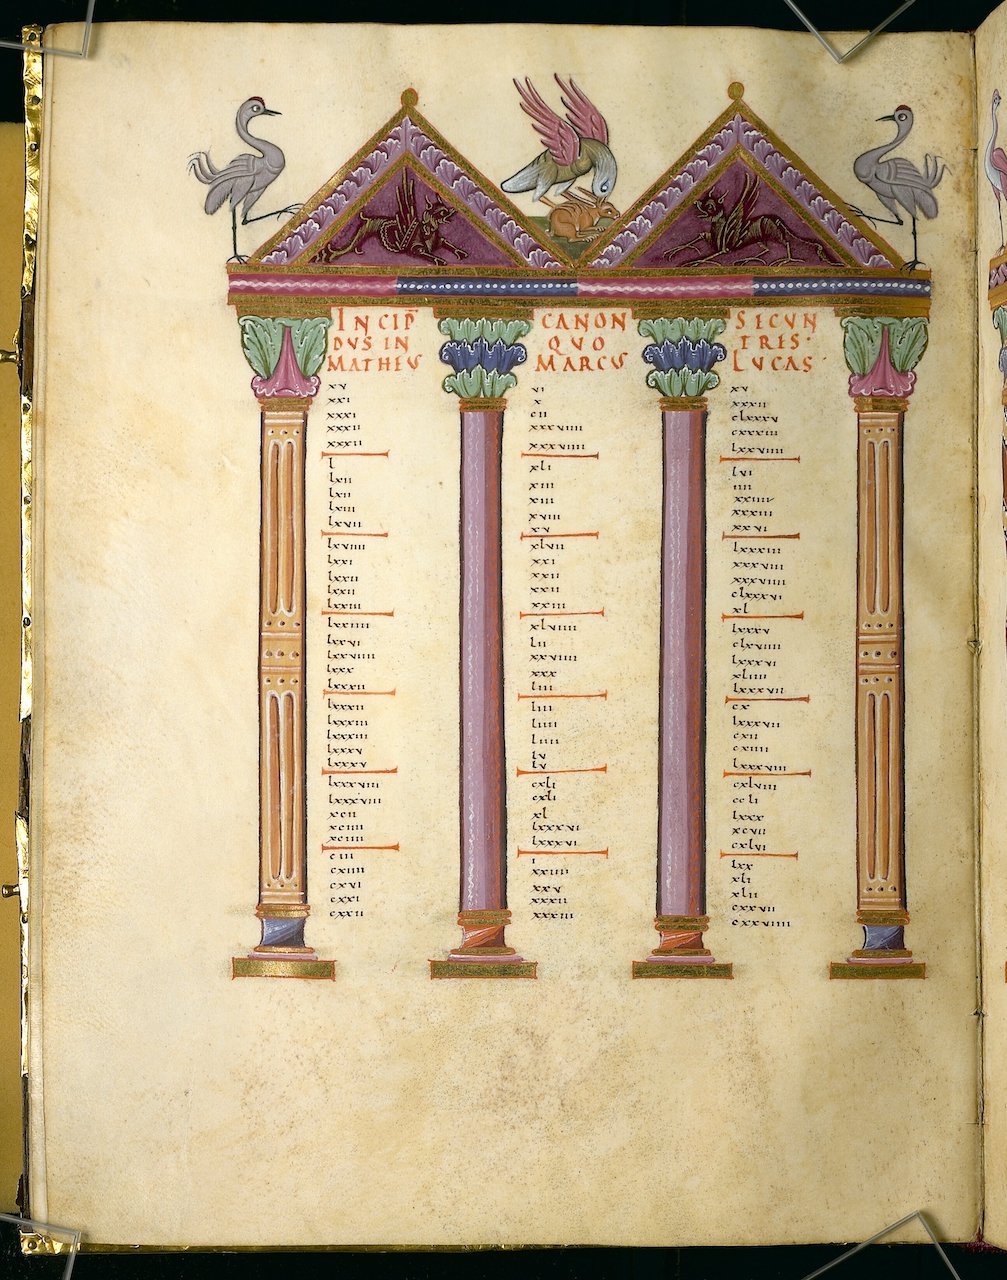 INCIP̄ CANON SECVN
DVS IN QVO TRES·
MATHEVS MARCVS LVCAS
xv vi xv
xxi x xxxii
xxxi cii clxxxv
xxxii xxxviiii cxxxiii
xxxii xxxviiii lxxviiii
l xli lvi
lxii xiii iiii
lxii xiii xxiiii
lxiii xviii xxxiii
lxvii xv xxvi
lxviiii xlvii lxxxiii
lxxi xxi xxxviii
lxxii xxii xxxviiii
lxxii xxii clxxxvi
lxxiii xxiii xl
lxxiiii xlviiii lxxxv
lxxvi lii clxviiii
lxxviiii xxviiii lxxxvi
lxxx xxx xliiii
lxxxii liii lxxxvii
lxxxii liii cx
lxxxiii liiii lxxxvii
lxxxiii liiii cxii
lxxxv lv cxiiii
lxxxv lv lxxxviii
lxxxviii cxli cxlviii
lxxxviii cxli ccli
xcii xl lxxx
xciiii lxxxvi xcvii
xciiii lxxxvi cxlvi
ciii i lxx
cxiiii xxiiii xli
cxvi xxv xlii
cxxi xxxii cxxvii
cxxii xxxiii cxxviiii